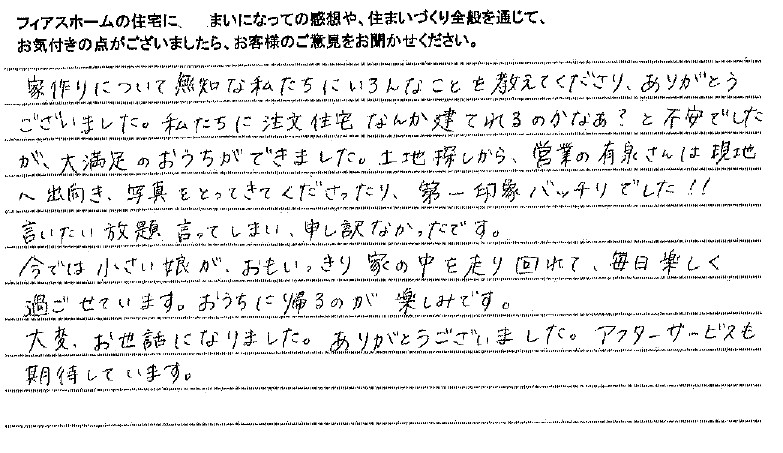 フィアスホームの住宅に、　まいになっての感想や、住まいづくり全般を通じて、
お気付きの点がございましたら、お客様のご意見をお聞かせください。
家作りについて無知な私たちにいろんなことを教えてくださり、ありがとう
ございました。私たちに注文住宅なんか建てれるのかなぁ？と不安でした
が、大満足のおうちができました。土地探しから、営業の有泉さんは現地
へ出向き、写真をとってきてくださったり、第一印象バッチリでした！！
言いたい放題言ってしまい、申し訳なかったです。
今では小さい娘が、おもいっきり家の中を走り回れて、毎日楽しく
過ごせています。おうちに帰るのが楽しみです。
大変、お世話になりました。ありがとうございました。アフターサービスも
期待しています。